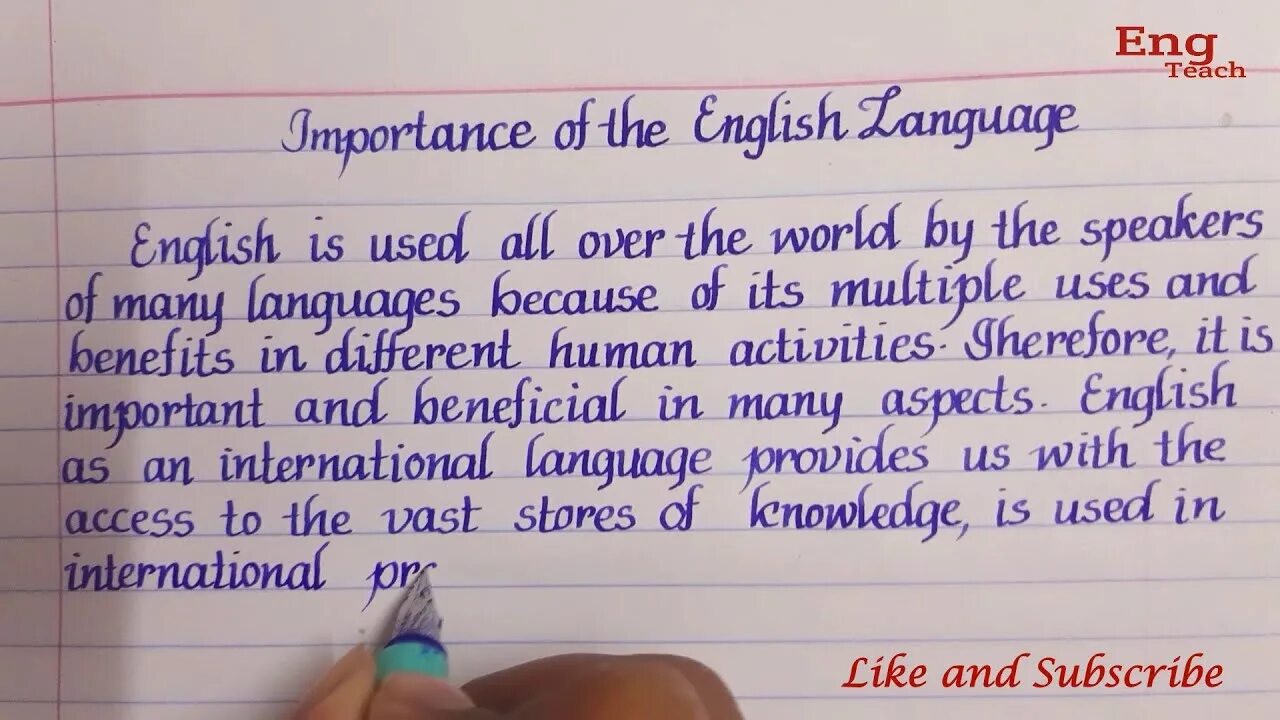 Eng
Teach
Importance of the English Language
English is used all over the world by the speakers
of many languages because of its multiple uses and
benefits in different human activities. Therefore, it is
important and beneficial in many aspects. English
as an international language provides us with the
access to the vast stores of knowledge, is used in
international
Like and Subscribe